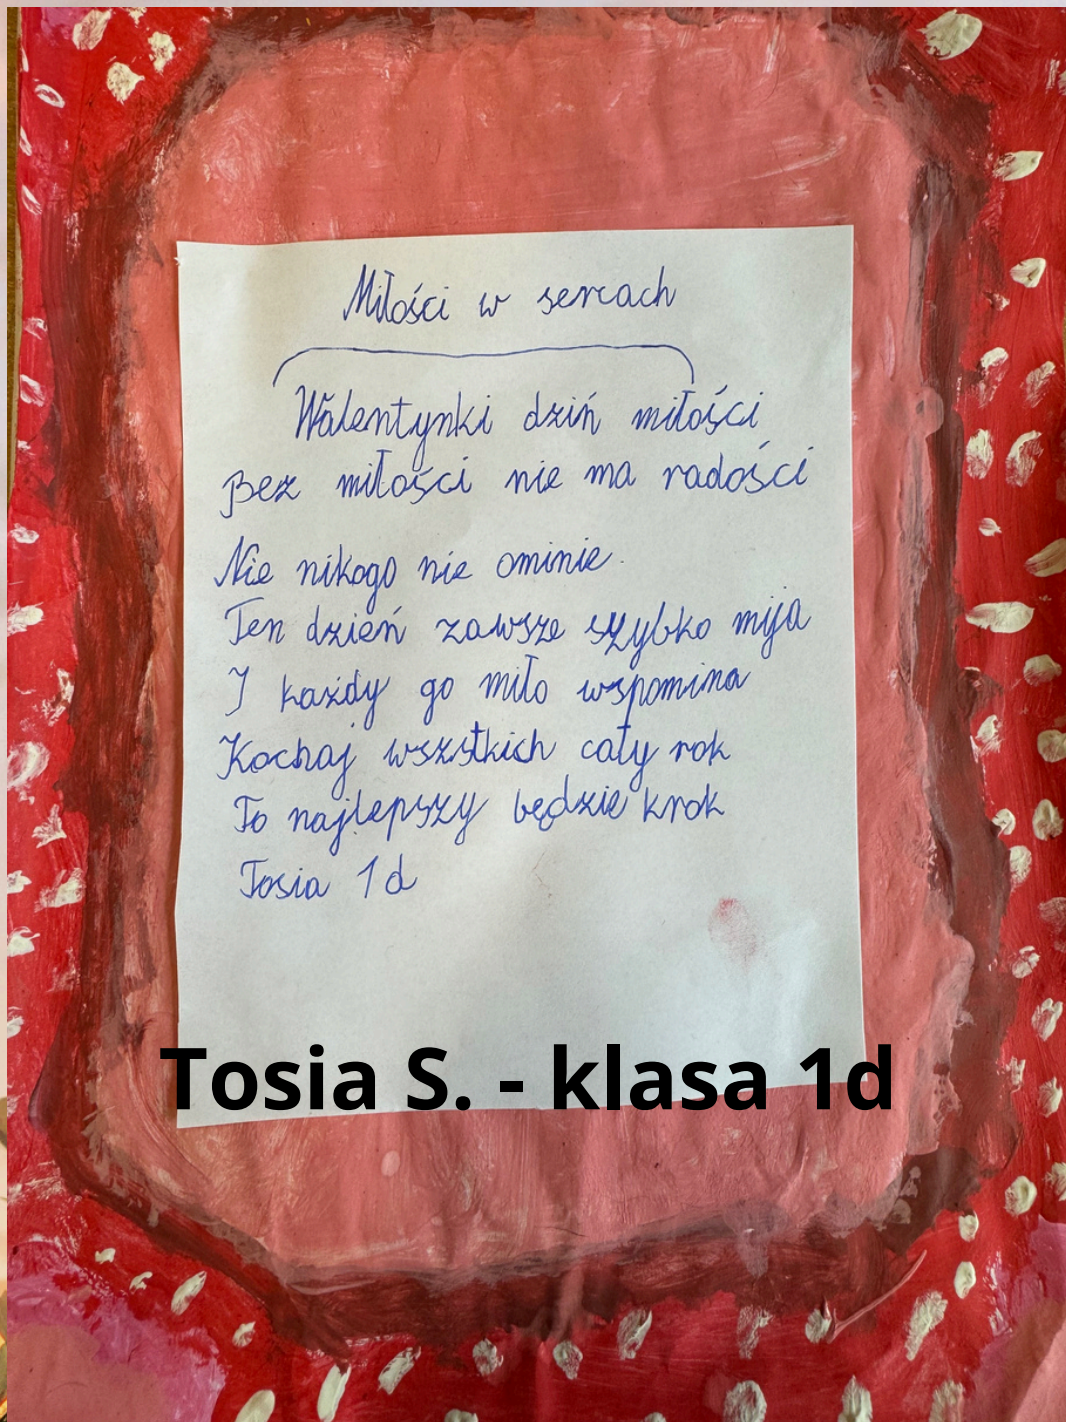 Miłości w sercach
Walentynki dziń miłości
Bez miłości nie ma radości
Nie nikogo nie ominie.
Ten dzień zawsze szybko mija
I każdy go miło wspomina
Kochaj wszstkich cały rok
To najlepszy będzie krok
Tosia 1d
Tosia S. - klasa 1d